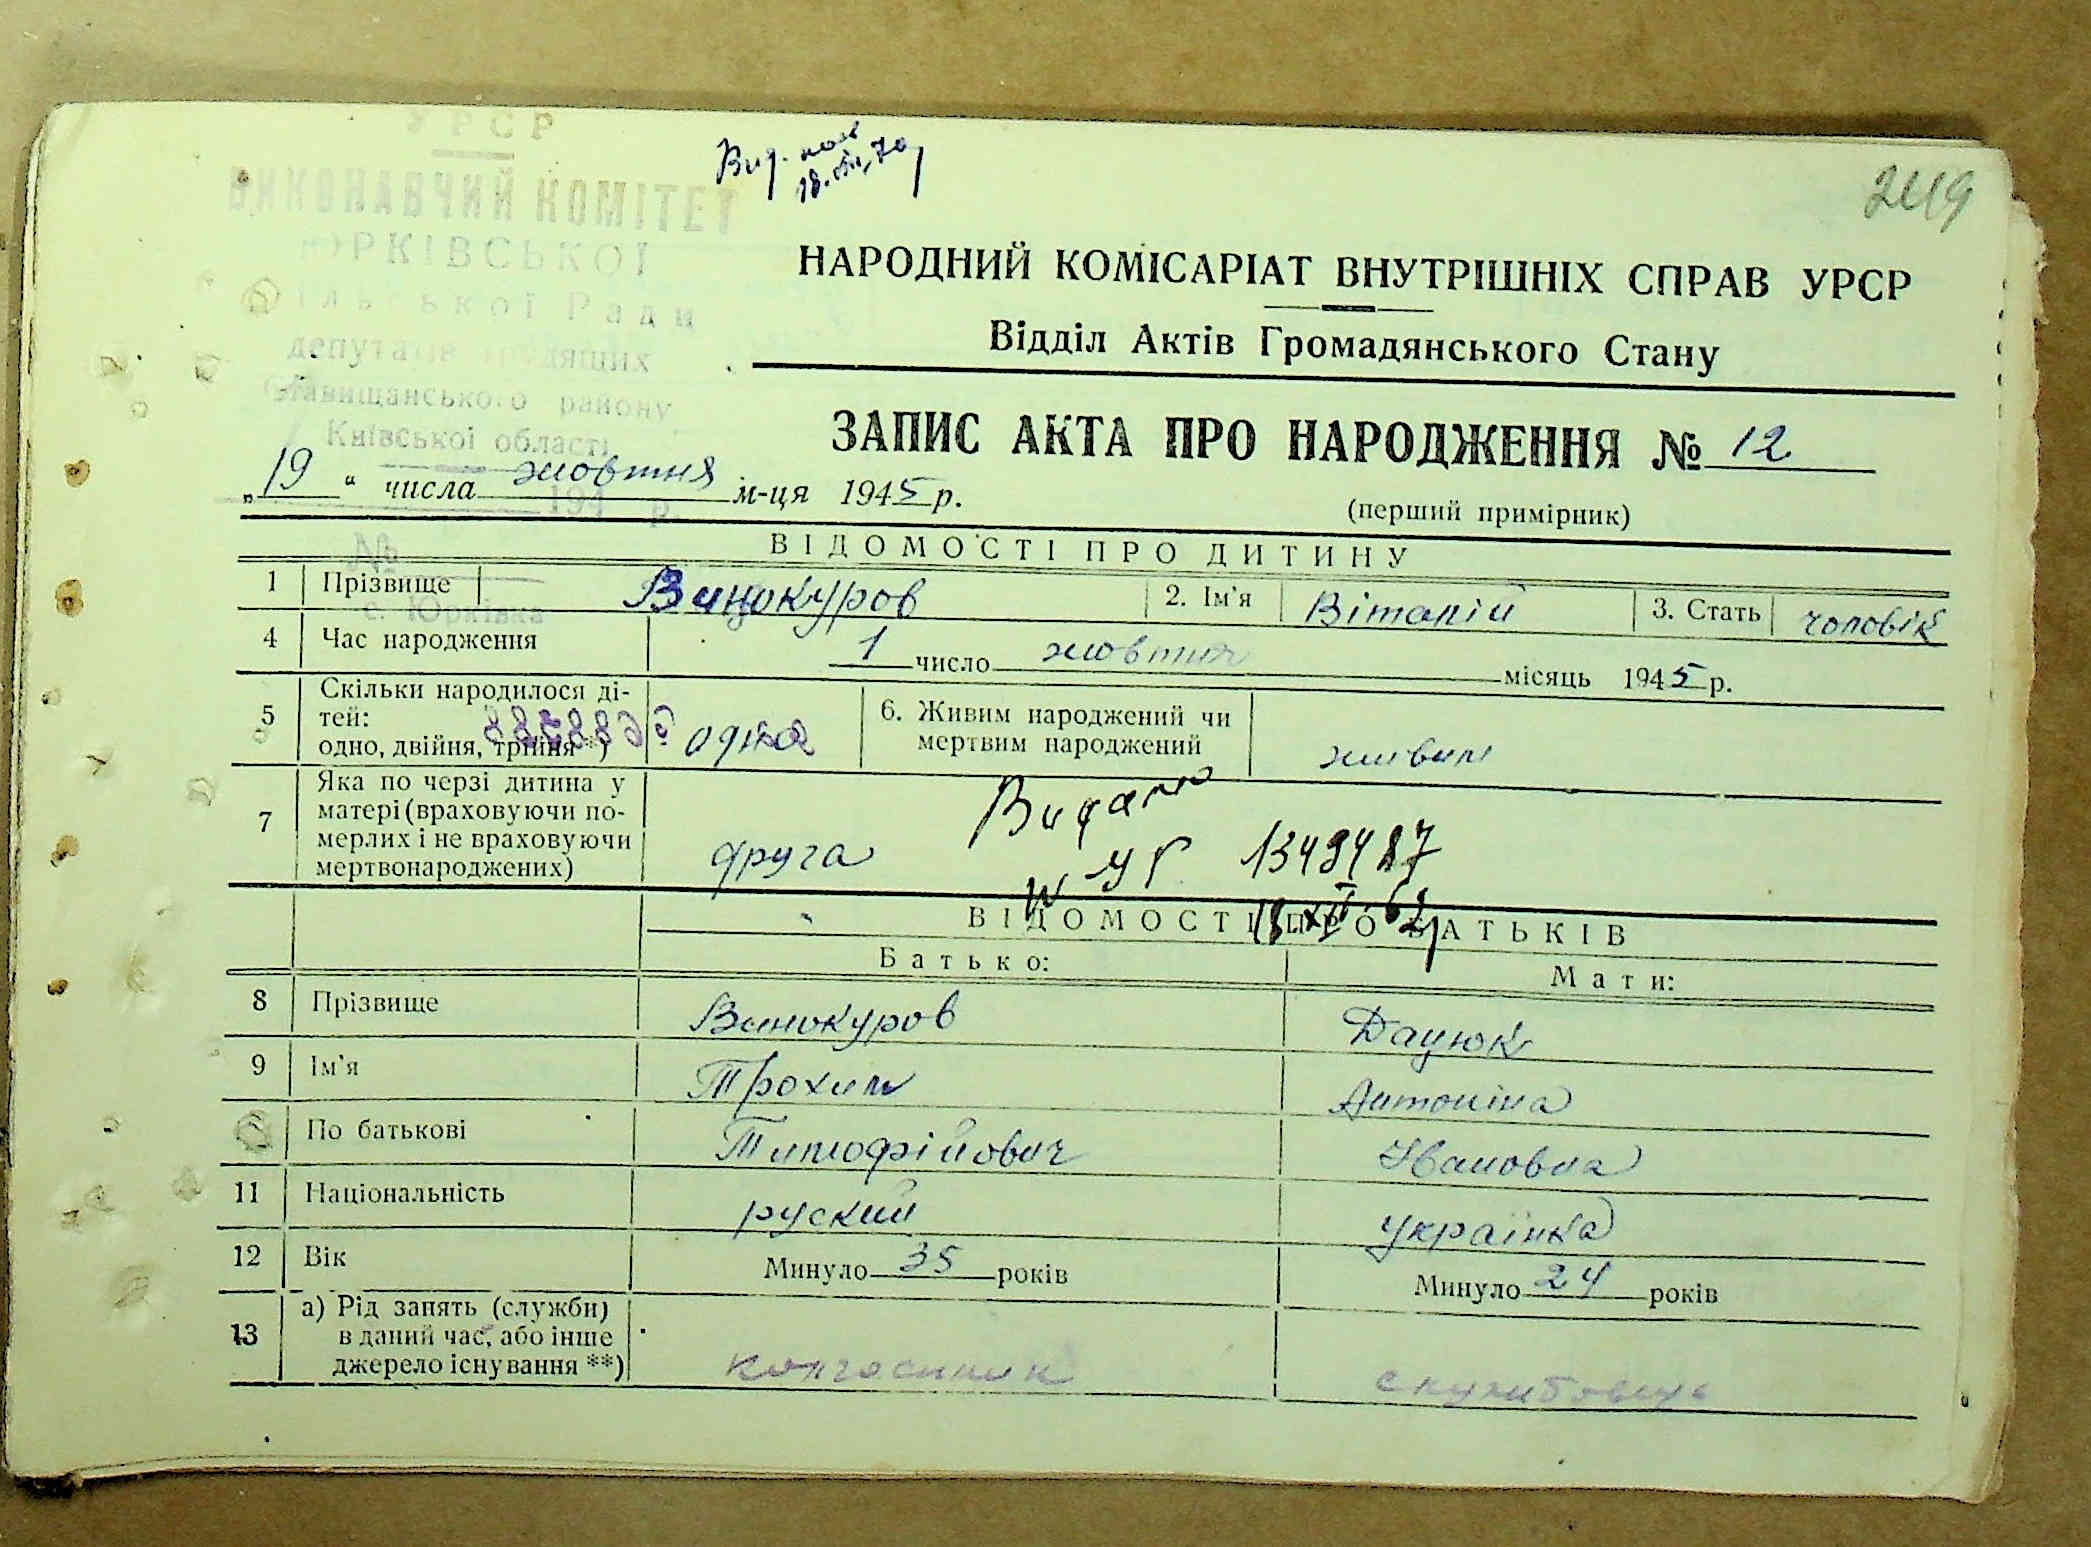 УРСР
ВИКОНАВЧИЙ КОМІТЕТ
ЮРКІВСЬКОЇ
Сільської Ради
депутатів трудящих
Ставищанського району
Київської області
194 р.
№
с. Юрківка
Вид. пов
18.VIII.70
249
НАРОДНИЙ КОМІСАРІАТ ВНУТРІШНІХ СПРАВ УРСР
Відділ Актів Громадянського Стану
ЗАПИС АКТА ПРО НАРОДЖЕННЯ № 12
„19“ числа жовтня м-ця 1945 р.
(перший примірник)
ВІДОМОСТІ ПРО ДИТИНУ
1 Прізвище Винокуров 2. Ім'я Віталій 3. Стать чоловік
4 Час народження 1 число жовтня місяць 1945 р.
5 Скільки народилося ді-
тей:
одно, двійня, трійня *) одна
6. Живим народжений чи
мертвим народжений живим
7 Яка по черзі дитина у
матері (враховуючи по-
мерлих і не враховуючи
мертвонароджених) друга
Видано
УР 1349487
18 XII 62
ВІДОМОСТІ ПРО БАТЬКІВ
Батько: Мати:
8 Прізвище Винокуров Дацюк
9 Ім'я Трохим Антоніна
По батькові Тимофійович Ивановна
11 Національність руский українка
12 Вік Минуло 35 років Минуло 24 років
13 а) Рід занять (служби)
в даний час, або інше
джерело існування **) колгоспник службовець